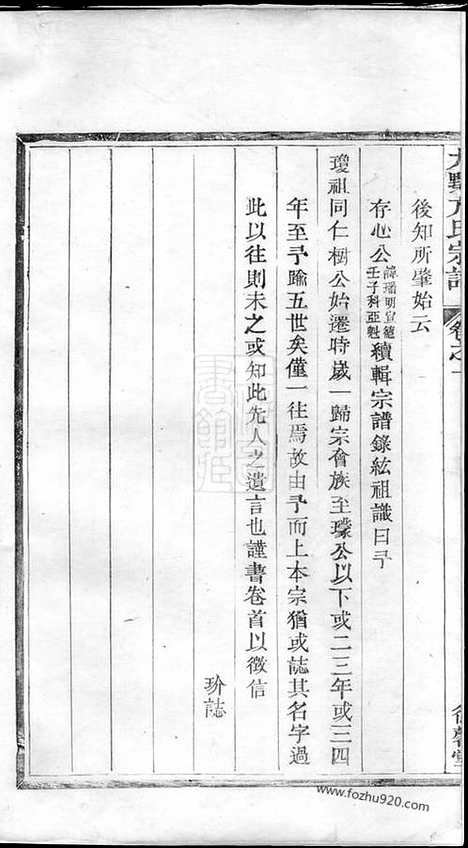 方氏宗譜
後知所肇始云
存心公諱璠明宣德壬子科亞魁續輯宗譜錄紘祖識曰予
瓊祖同仁樹公始遷時歲一歸宗會族至璨公以下或二三年或三四
年至予踰五世矣僅一往焉故由予而上本宗猶或誌其名字過
此以往則未之或知此先人之遺言也謹書卷首以徵信
玠誌
www.fozhu920.com